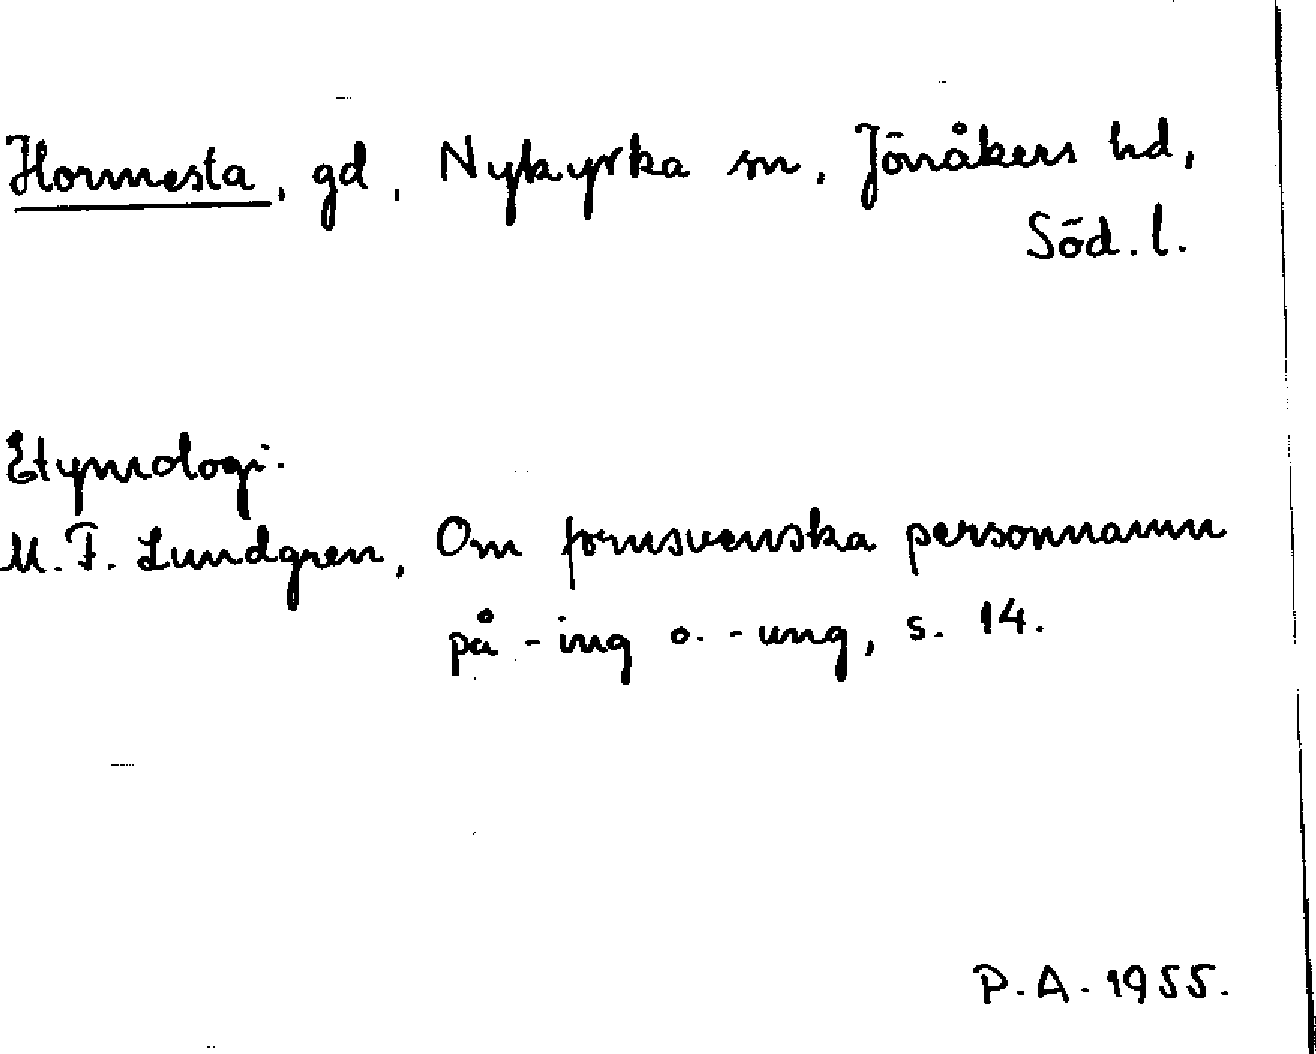 Hormesta, gd, Nykyrka sn, Jönåkers hd,
Söd. l.
Etymologi.
M. F. Lundgren, Om fornsvenska personnamn
på -ing o. -ung, s. 14.
P. A. 1955.